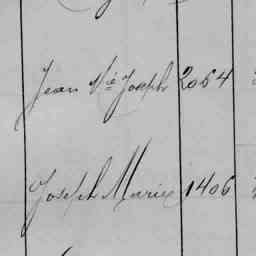 Jean Mie Joseph 2054
Joseph Marie 1406